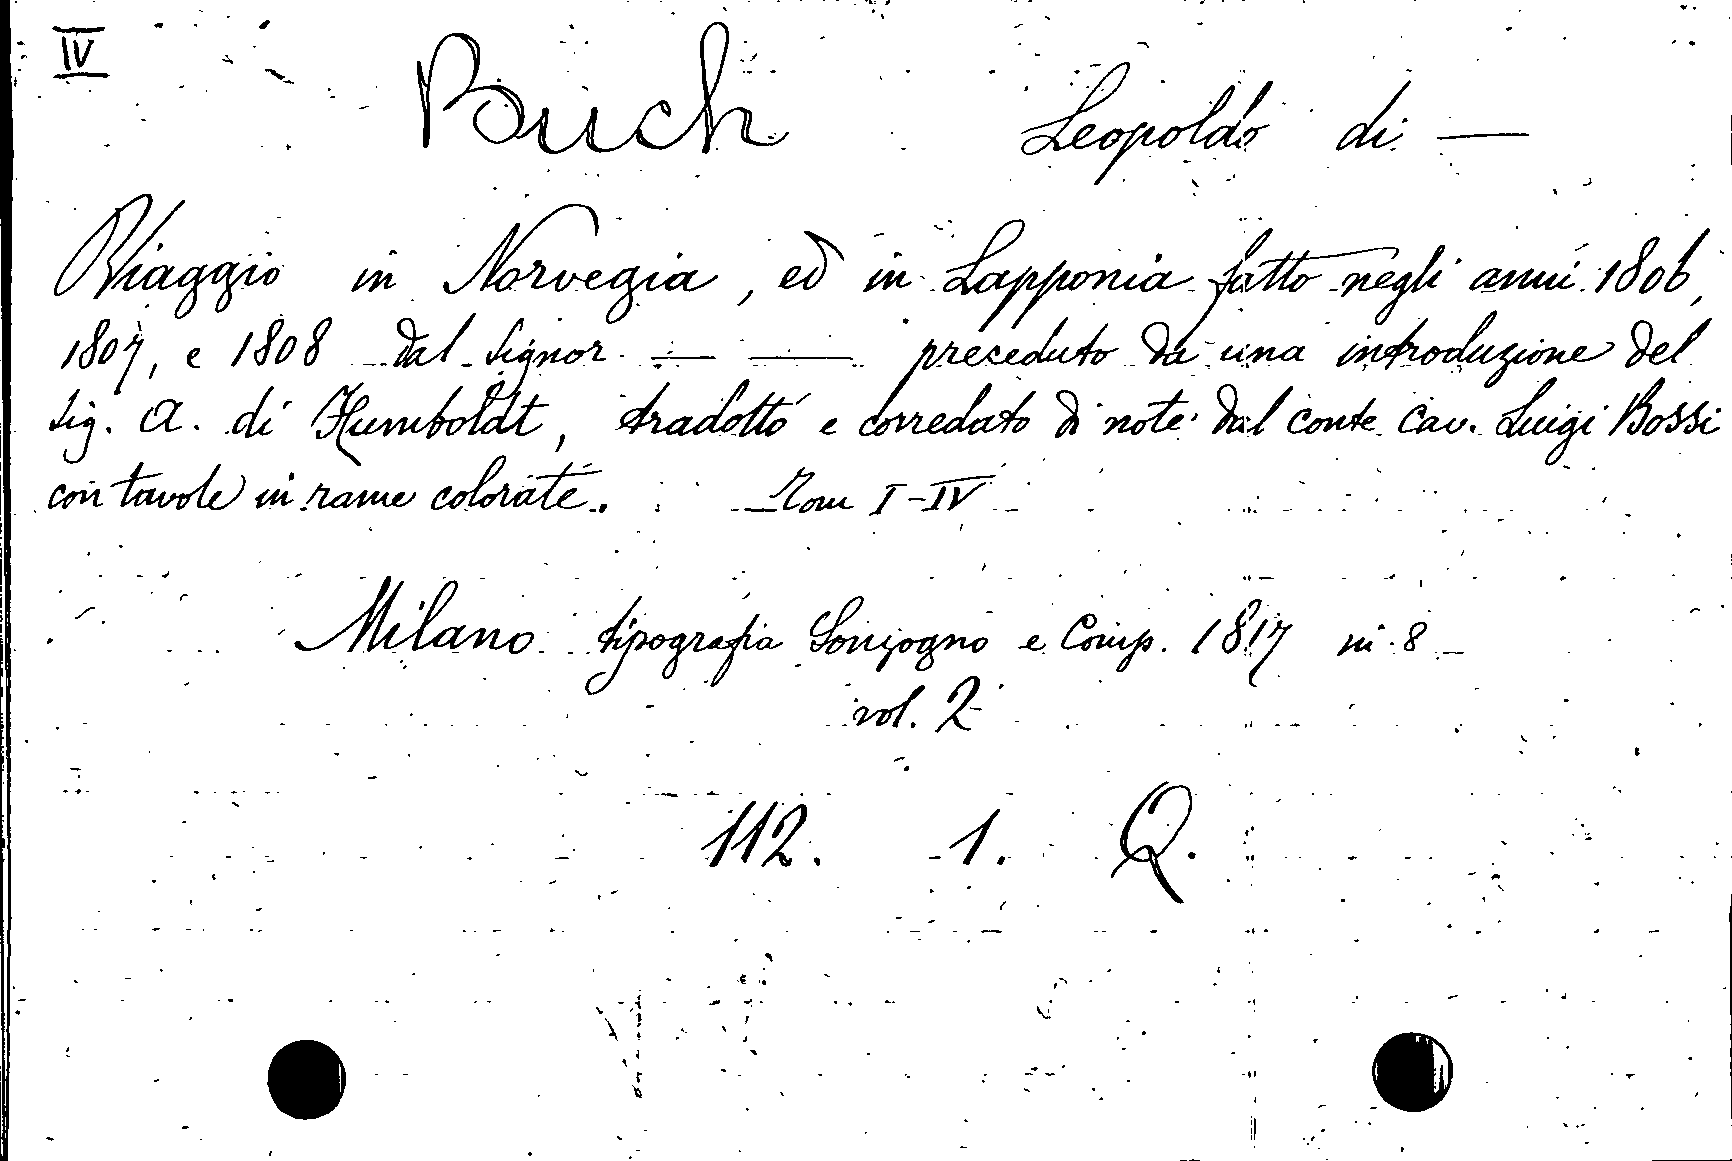 IV
Buch Leopoldo di —
Viaggio in Norvegia, ed in Lapponia fatto negli anni 1806,
1807, e 1808 dal signor — — preceduto da una introduzione del
sig. A. di Humboldt, tradotto e corredato di note dal conte cav. Luigi Bossi
con tavole in rame colorate. — Tom I-IV
Milano tipografia Sonzogno e Comp. 1817 in 8
vol. 2
112. 1. Q.